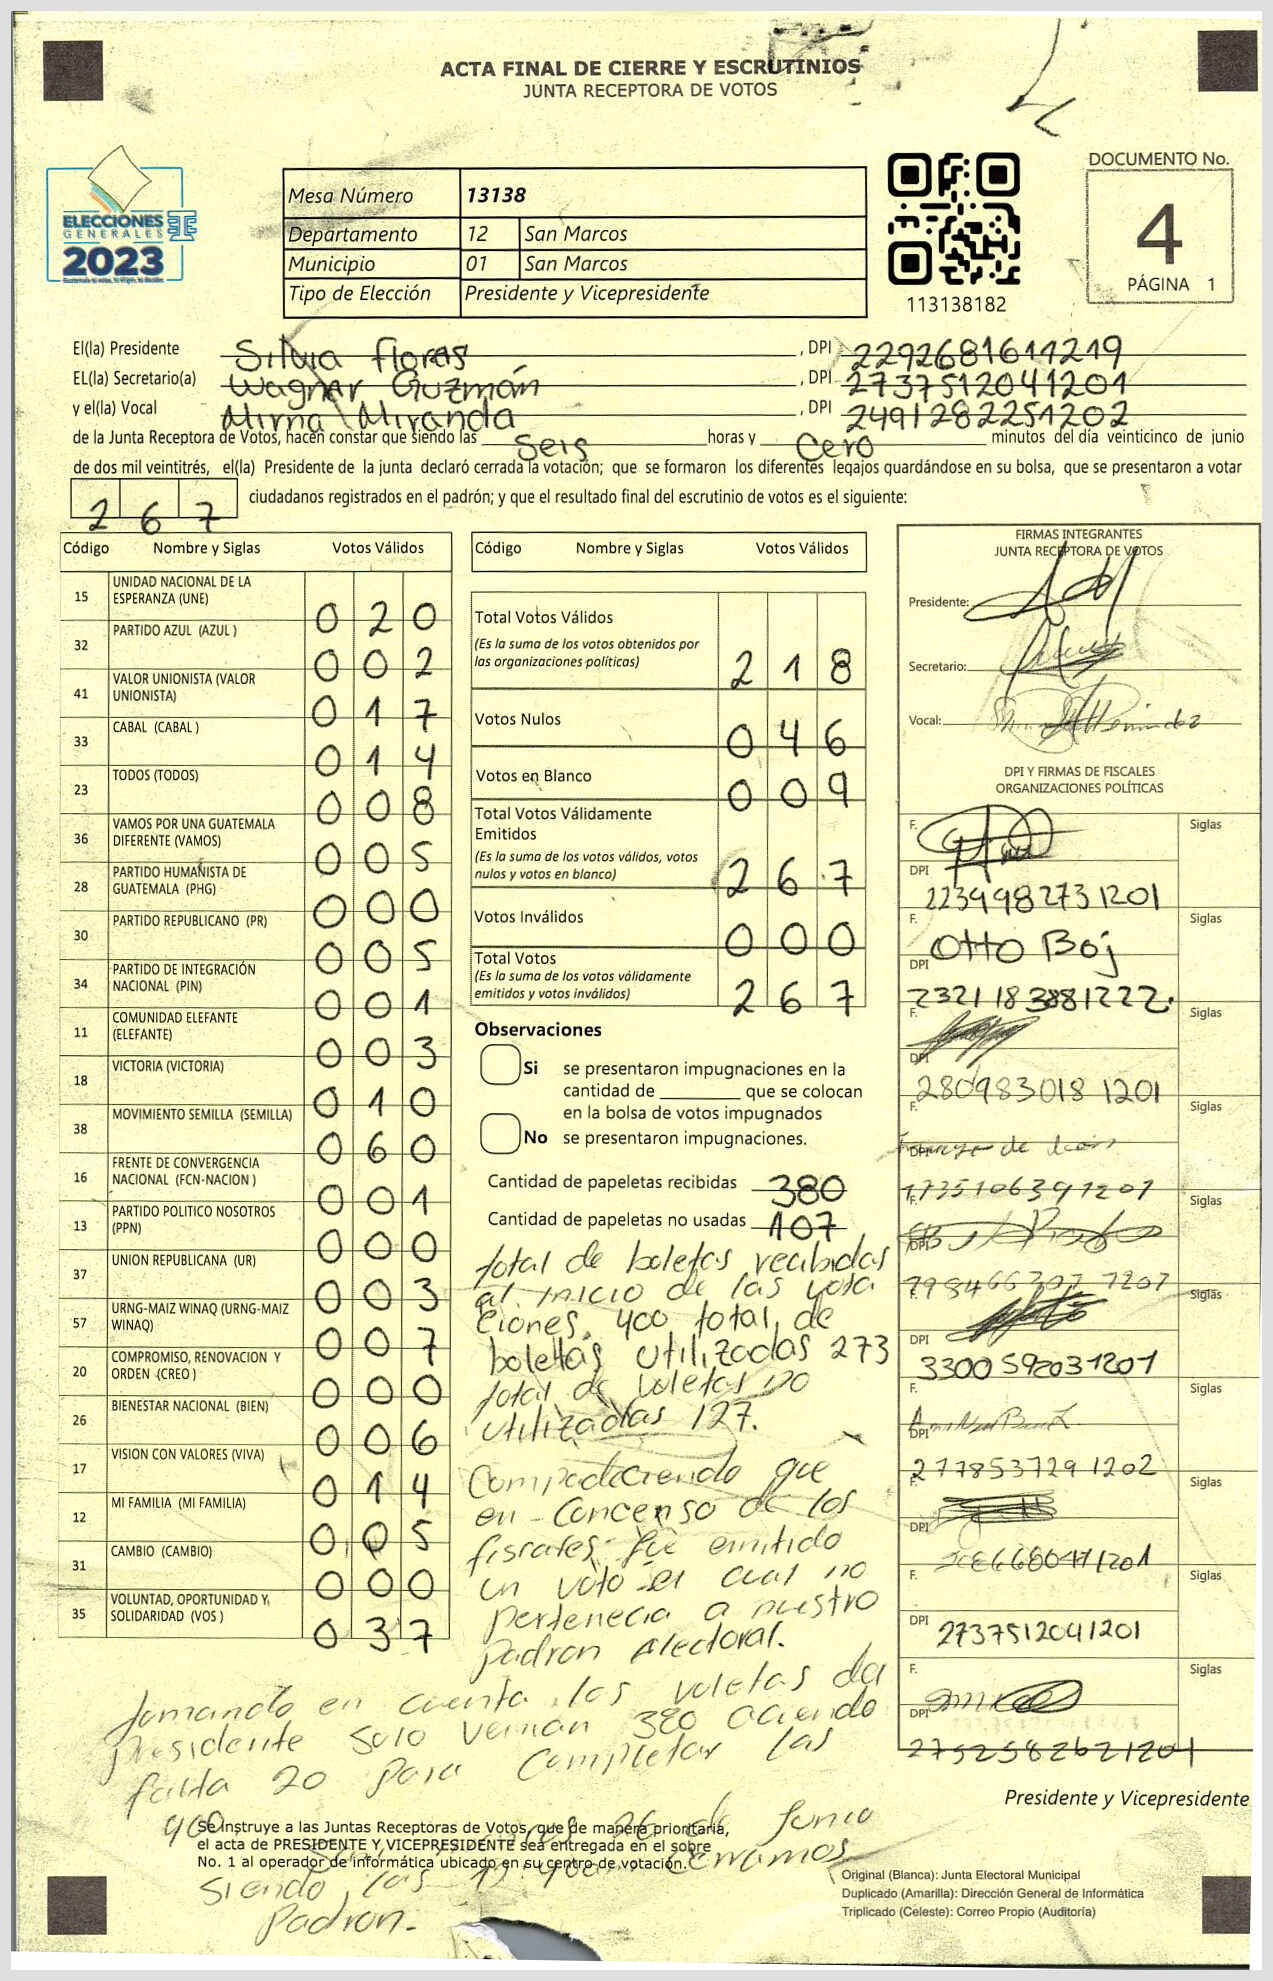 ACTA FINAL DE CIERRE Y ESCRUTINIOS
JUNTA RECEPTORA DE VOTOS
ELECCIONES
GENERALES
2023
Mesa Número 13138
Departamento 12 San Marcos
Municipio 01 San Marcos
Tipo de Elección Presidente y Vicepresidente
113138182
DOCUMENTO No.
4
PÁGINA 1
El(la) Presidente Silvia Flores, DPI 2292681611219
EL(la) Secretario(a) Wagner Guzmán, DPI 2737512041201
y el(la) Vocal Mirna Miranda, DPI 2491282251202
de la Junta Receptora de Votos, hacen constar que siendo las Seis horas y Cero minutos del día veinticinco de junio
de dos mil veintitrés, el(la) Presidente de la junta declaró cerrada la votación; que se formaron los diferentes legajos guardándose en su bolsa, que se presentaron a votar
267 ciudadanos registrados en el padrón; y que el resultado final del escrutinio de votos es el siguiente:
Código Nombre y Siglas Votos Válidos
15 UNIDAD NACIONAL DE LA ESPERANZA (UNE) 020
32 PARTIDO AZUL (AZUL ) 002
41 VALOR UNIONISTA (VALOR UNIONISTA) 017
33 CABAL (CABAL ) 014
23 TODOS (TODOS) 008
36 VAMOS POR UNA GUATEMALA DIFERENTE (VAMOS) 005
28 PARTIDO HUMANISTA DE GUATEMALA (PHG) 000
30 PARTIDO REPUBLICANO (PR) 005
34 PARTIDO DE INTEGRACIÓN NACIONAL (PIN) 001
11 COMUNIDAD ELEFANTE (ELEFANTE) 003
18 VICTORIA (VICTORIA) 010
38 MOVIMIENTO SEMILLA (SEMILLA) 060
16 FRENTE DE CONVERGENCIA NACIONAL (FCN-NACION ) 001
13 PARTIDO POLITICO NOSOTROS (PPN) 000
37 UNION REPUBLICANA (UR) 003
57 URNG-MAIZ WINAQ (URNG-MAIZ WINAQ) 007
20 COMPROMISO, RENOVACION Y ORDEN (CREO ) 000
26 BIENESTAR NACIONAL (BIEN) 006
17 VISION CON VALORES (VIVA) 014
12 MI FAMILIA (MI FAMILIA) 005
31 CAMBIO (CAMBIO) 000
35 VOLUNTAD, OPORTUNIDAD Y SOLIDARIDAD (VOS ) 037
Código Nombre y Siglas Votos Válidos
Total Votos Válidos 218
(Es la suma de los votos obtenidos por
las organizaciones políticas)
Votos Nulos 046
Votos en Blanco 009
Total Votos Válidamente
Emitidos 267
(Es la suma de los votos válidos, votos
nulos y votos en blanco)
Votos Inválidos 000
Total Votos 267
(Es la suma de los votos válidamente
emitidos y votos inválidos)
Observaciones
Si se presentaron impugnaciones en la
cantidad de ________ que se colocan
en la bolsa de votos impugnados
No se presentaron impugnaciones.
Cantidad de papeletas recibidas 380
Cantidad de papeletas no usadas 107
total de boletas recibidas
al inicio de las vota
ciones, 400 total de
boletas utilizadas 273
total de voletas no
utilizadas 127.
Compadeciendo que
en-Concenso de los
fiscales fue emitido
un voto el cual no
pertenecia a nuestro
padron electoral.
tomando en cuenta las voletas del
presidente solo venian 380 aciendo
falta 20 para completar las
400
Se instruye a las Juntas Receptoras de Votos, que de manera prioritaria,
el acta de PRESIDENTE Y VICEPRESIDENTE sea entregada en el sobre
No. 1 al operador de informática ubicado en su centro de votación.
26 de Junio
siendo las cerramos
Padron.-
FIRMAS INTEGRANTES
JUNTA RECEPTORA DE VOTOS
Presidente:
Secretario:
Vocal:
DPI Y FIRMAS DE FISCALES
ORGANIZACIONES POLÍTICAS
F. Siglas
DPI 2239982731201
F. Otto Boj Siglas
DPI 2321183881222.
F. Siglas
DPI 2809830181201
F. de león Siglas
DPI 1735106391201
F. Siglas
DPI
F. Siglas
DPI 3300592031201
F. Siglas
DPI 2778537291202
F. Siglas
DPI
F. Siglas
DPI 2737512041201
F. Siglas
DPI 2752582621201
Presidente y Vicepresidente
Original (Blanca): Junta Electoral Municipal
Duplicado (Amarilla): Dirección General de Informática
Triplicado (Celeste): Correo Propio (Auditoría)